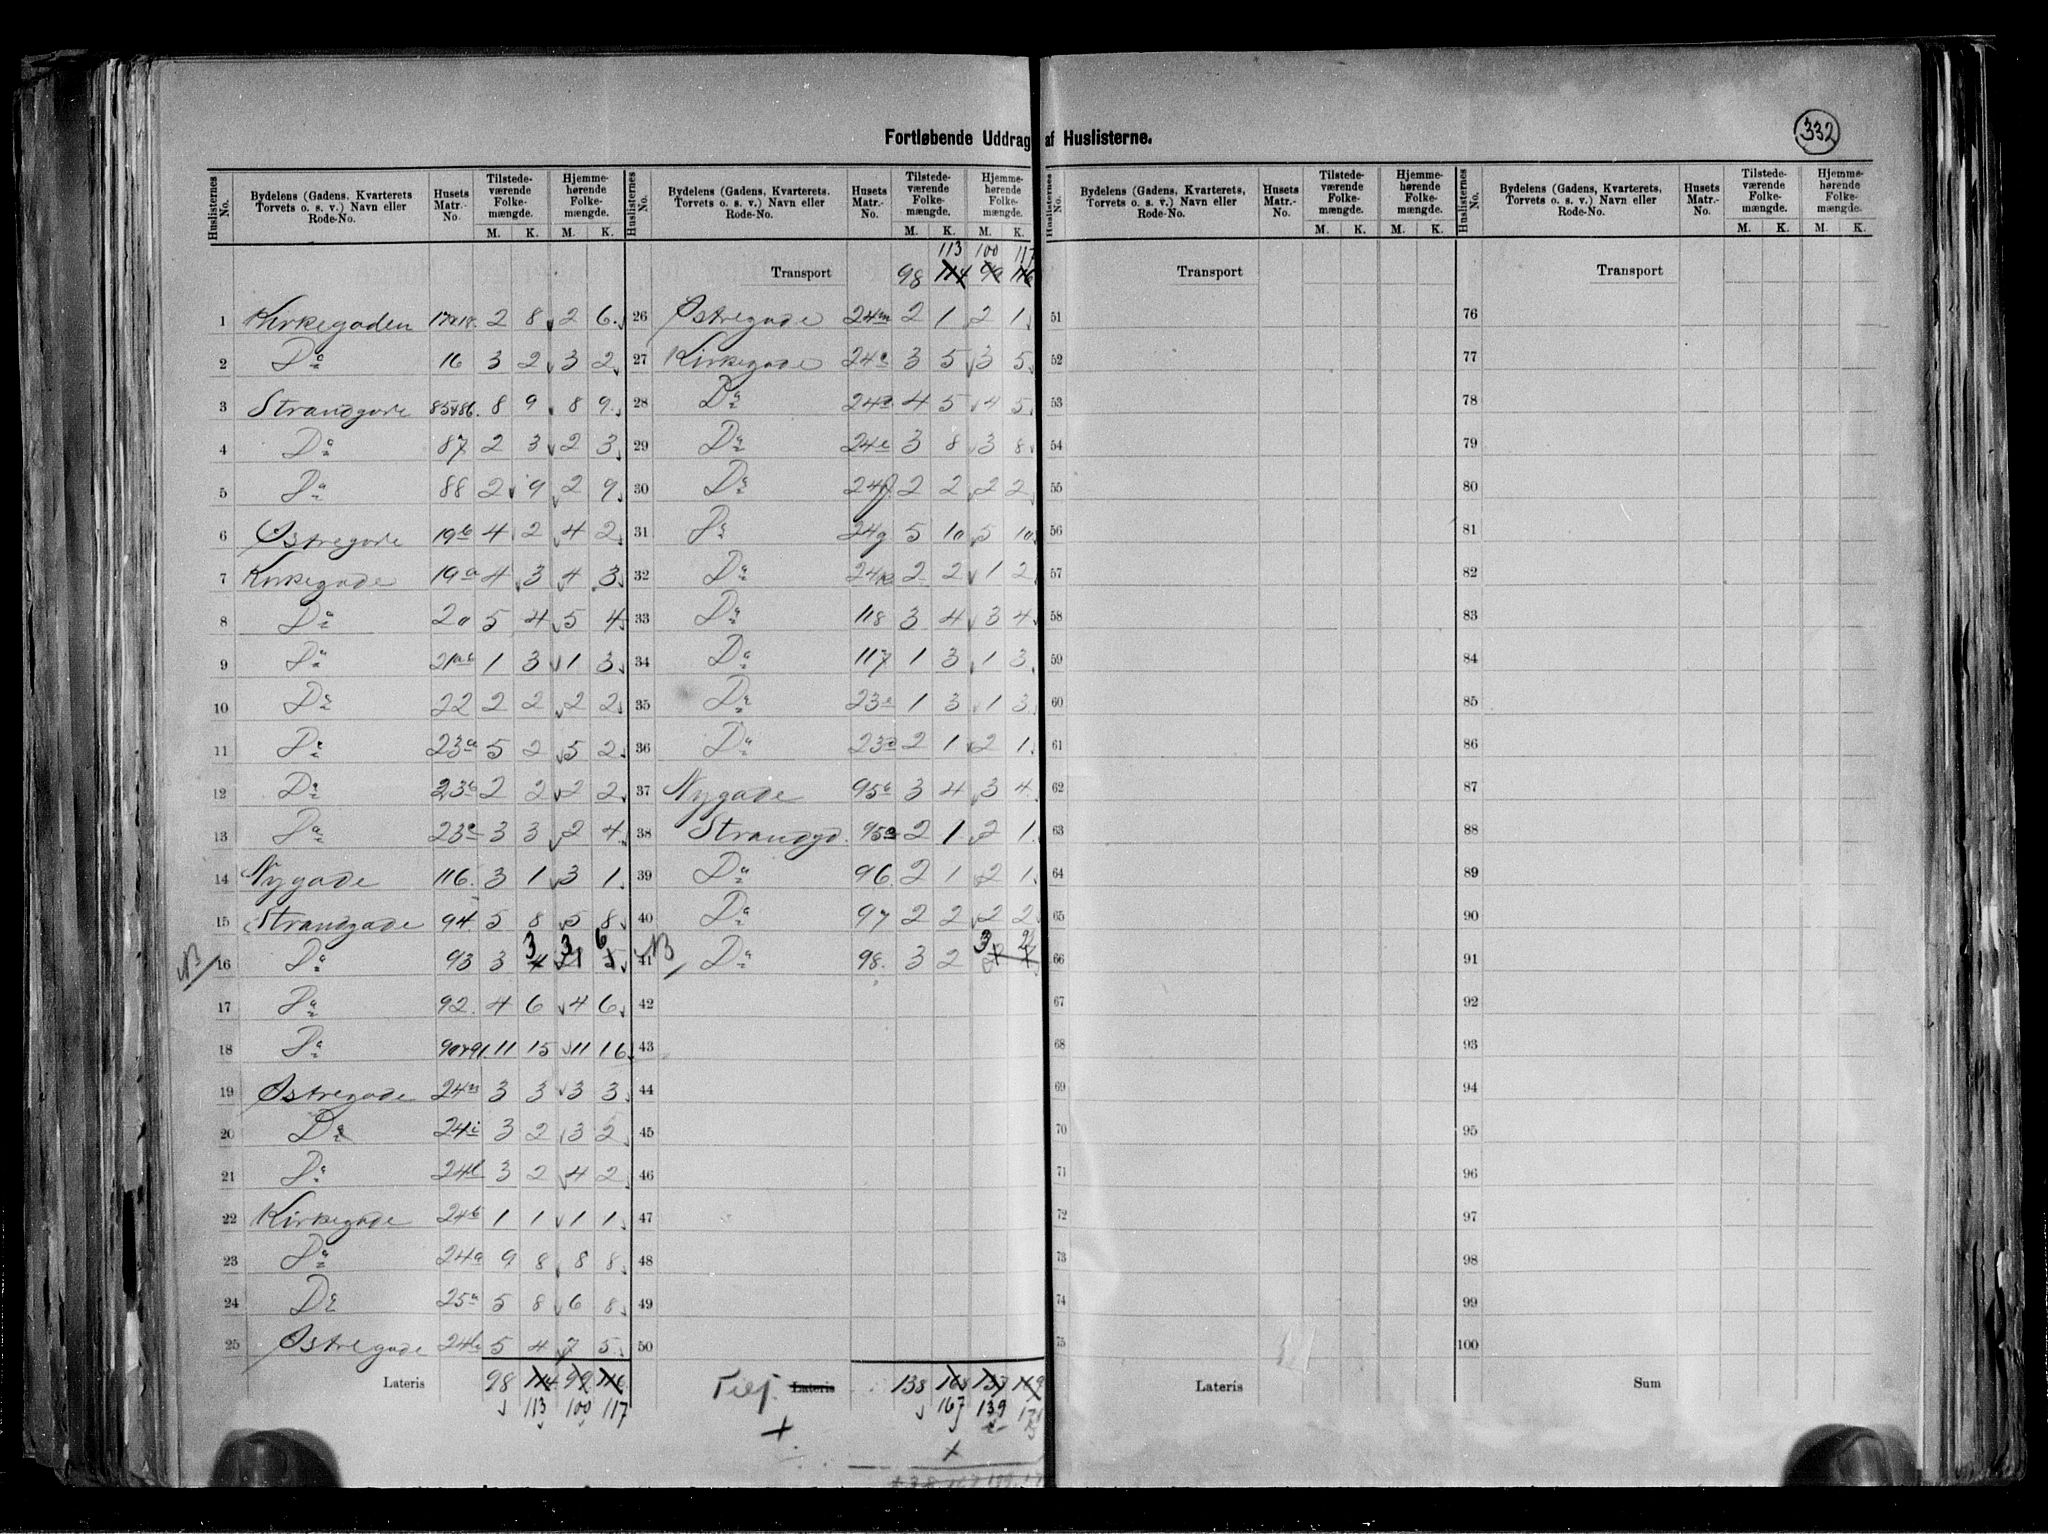 Fortløbende Uddrag af Huslisterne.
332
Huslisternes No. | Bydelens (Gadens, Kvarterets Torvets o. s. v.) Navn eller Rode-No. | Husets Matr.-No. | Tilstedeværende Folkemængde. M. K. | Hjemmehørende Folkemængde. M. K.
1 Kirkegaden 2 8 2 6
2 Do 16 3 2 3 2
3 Strandgade 85&86. 8 9 8 9
4 Do 87 2 3 2 3
5 Do 88 2 9 2 9
6 Østregade 19b 4 2 4 2
7 Kirkegade 19a 4 3 4 3
8 Do 20 5 4 5 4
9 Do 21ab 1 3 1 3
10 Do 22 2 2 2 2
11 Do 23a 5 2 5 2
12 Do 23b 2 2 2 2
13 Do 3 3 2 4
14 Nygade 116. 3 1 3 1
15 Strandgade 94. 5 8 5 8
NB 16 Do 93 3 3 3 6
17 Do 92. 4 6 4 6
18 Do 90&91. 11 15 11 16
19 Østregade 24m 3 3 3 3
20 Do 24i 3 2 3 2
21 Do 24l 3 2 4 2
22 Kirkegade 24b 1 1 1 1
23 Do 24a 9 8 8 8
24 Do 25a 5 8 6 8
25 Østregade 5 4 7 5
Lateris 98 114 99 116
113 100 117
Huslisternes No. | Bydelens (Gadens, Kvarterets. Torvets o. s. v.) Navn eller Rode-No. | Husets Matr.-No. | Tilstedeværende Folkemængde. M. K. | Hjemmehørende Folkemængde. M. K.
113 100 117
Transport 98 114 99 116
26 Østregade 2 1 2 1
27 Kirkegade 3 5 3 5
28 Do 24d 4 5 4 5
29 Do 24e 3 8 3 8
30 Do 24f. 2 2 2 2
31 Do 24g 5 10 5 10
32 Do 2 2 1 2
33 Do 118 3 4 3 4
34 Do 117 1 3 1 3
35 Do 1 3 1 3
36 Do 23d 2 1 2 1
37 Nygade 3 4 3 4
38 Strandgd. 95a 2 1 2 1
39 Do 96. 2 1 2 1
40 Do 97 2 2 2 2
NB 41 Do 98. 3 2 3 2
42
43
44
45
46
47
48
49
50
Lateris 138 168 137 169
167 139 171
Huslisternes No. | Bydelens (Gadens, Kvarterets, Torvets o. s. v.) Navn eller Rode-No. | Husets Matr.-No. | Tilstedeværende Folkemængde. M. K. | Hjemmehørende Folkemængde. M. K.
Transport
51
52
53
54
55
56
57
58
59
60
61
62
63
64
65
66
67
68
69
70
71
72
73
74
75
Lateris
Huslisternes No. | Bydelens (Gadens, Kvarterets, Torvets o. s. v.) Navn eller Rode-No. | Husets Matr.-No. | Tilstedeværende Folkemængde. M. K. | Hjemmehørende Folkemængde. M. K.
Transport
76
77
78
79
80
81
82
83
84
85
86
87
88
89
90
91
92
93
94
95
96
97
98
99
100
Sum